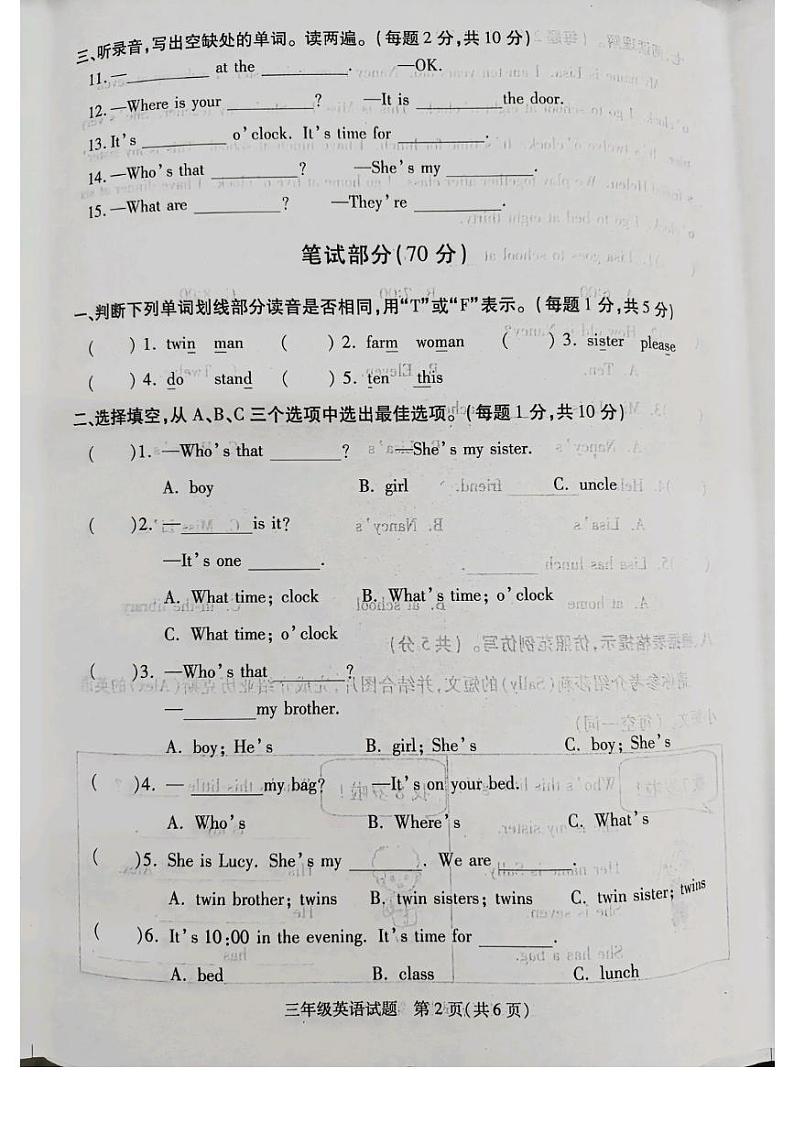 三、听录音,写出空缺处的单词。读两遍。(每题2分,共10分)
11. —________ at the ________. —OK.
12. —Where is your ________? —It is ________ the door.
13. It's ________ o'clock. It's time for ________.
14. —Who's that ________? —She's my ________.
15. —What are ________? —They're ________.
笔试部分(70分)
一、判断下列单词划线部分读音是否相同,用“T”或“F”表示。(每题1分,共5分)
( ) 1. twin man ( ) 2. farm woman ( ) 3. sister please
( ) 4. do stand ( ) 5. ten this
二、选择填空,从A、B、C三个选项中选出最佳选项。(每题1分,共10分)
( )1. —Who's that ________? —She's my sister.
A. boy B. girl C. uncle
( )2. —________ is it?
—It's one ________.
A. What time; clock B. What's time; o'clock
C. What time; o'clock
( )3. —Who's that ________?
—________ my brother.
A. boy; He's B. girl; She's C. boy; She's
( )4. —________ my bag? —It's on your bed.
A. Who's B. Where's C. What's
( )5. She is Lucy. She's my ________. We are ________.
A. twin brother; twins B. twin sisters; twins C. twin sister; twins
( )6. It's 10:00 in the evening. It's time for ________.
A. bed B. class C. lunch
三年级英语试题 第2页(共6页)